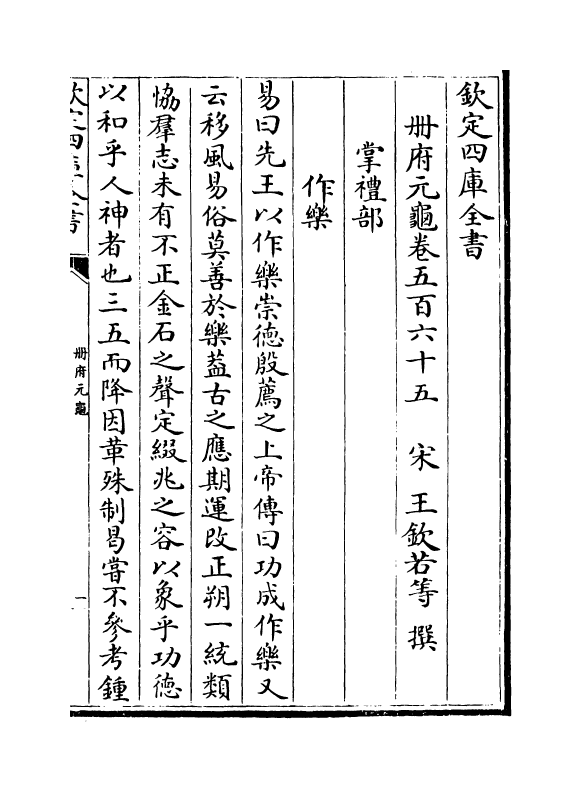 欽定四庫全書
冊府元龜卷五百六十五　宋　王欽若等　撰
掌禮部
作樂
易曰先王以作樂崇德殷薦之上帝傳曰功成作樂又
云移風易俗莫善於樂葢古之應期運改正朔一統類
恊羣志未有不正金石之聲定綴兆之容以象乎功德
以和乎人神者也三五而降因革殊制曷嘗不參考鍾
欽定四庫全書
冊府元龜
一